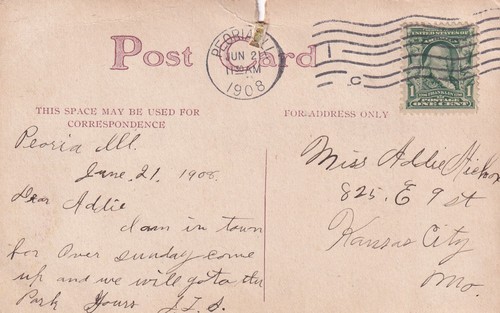 Post Card
PEORIA, ILL.
JUN 21
11 30 AM
1908
C
UNITED STATES OF
1
FRANKLIN
POSTAGE
ONE CENT
THIS SPACE MAY BE USED FOR
CORRESPONDENCE
FOR ADDRESS ONLY
Peoria Ill.
June. 21, 1908.
Dear Addie
I am in town
for Over Sunday come
up and we will go to the
Park Yours J.T.S.
Miss Addie
825. E 9 st
Kansas City
Mo.